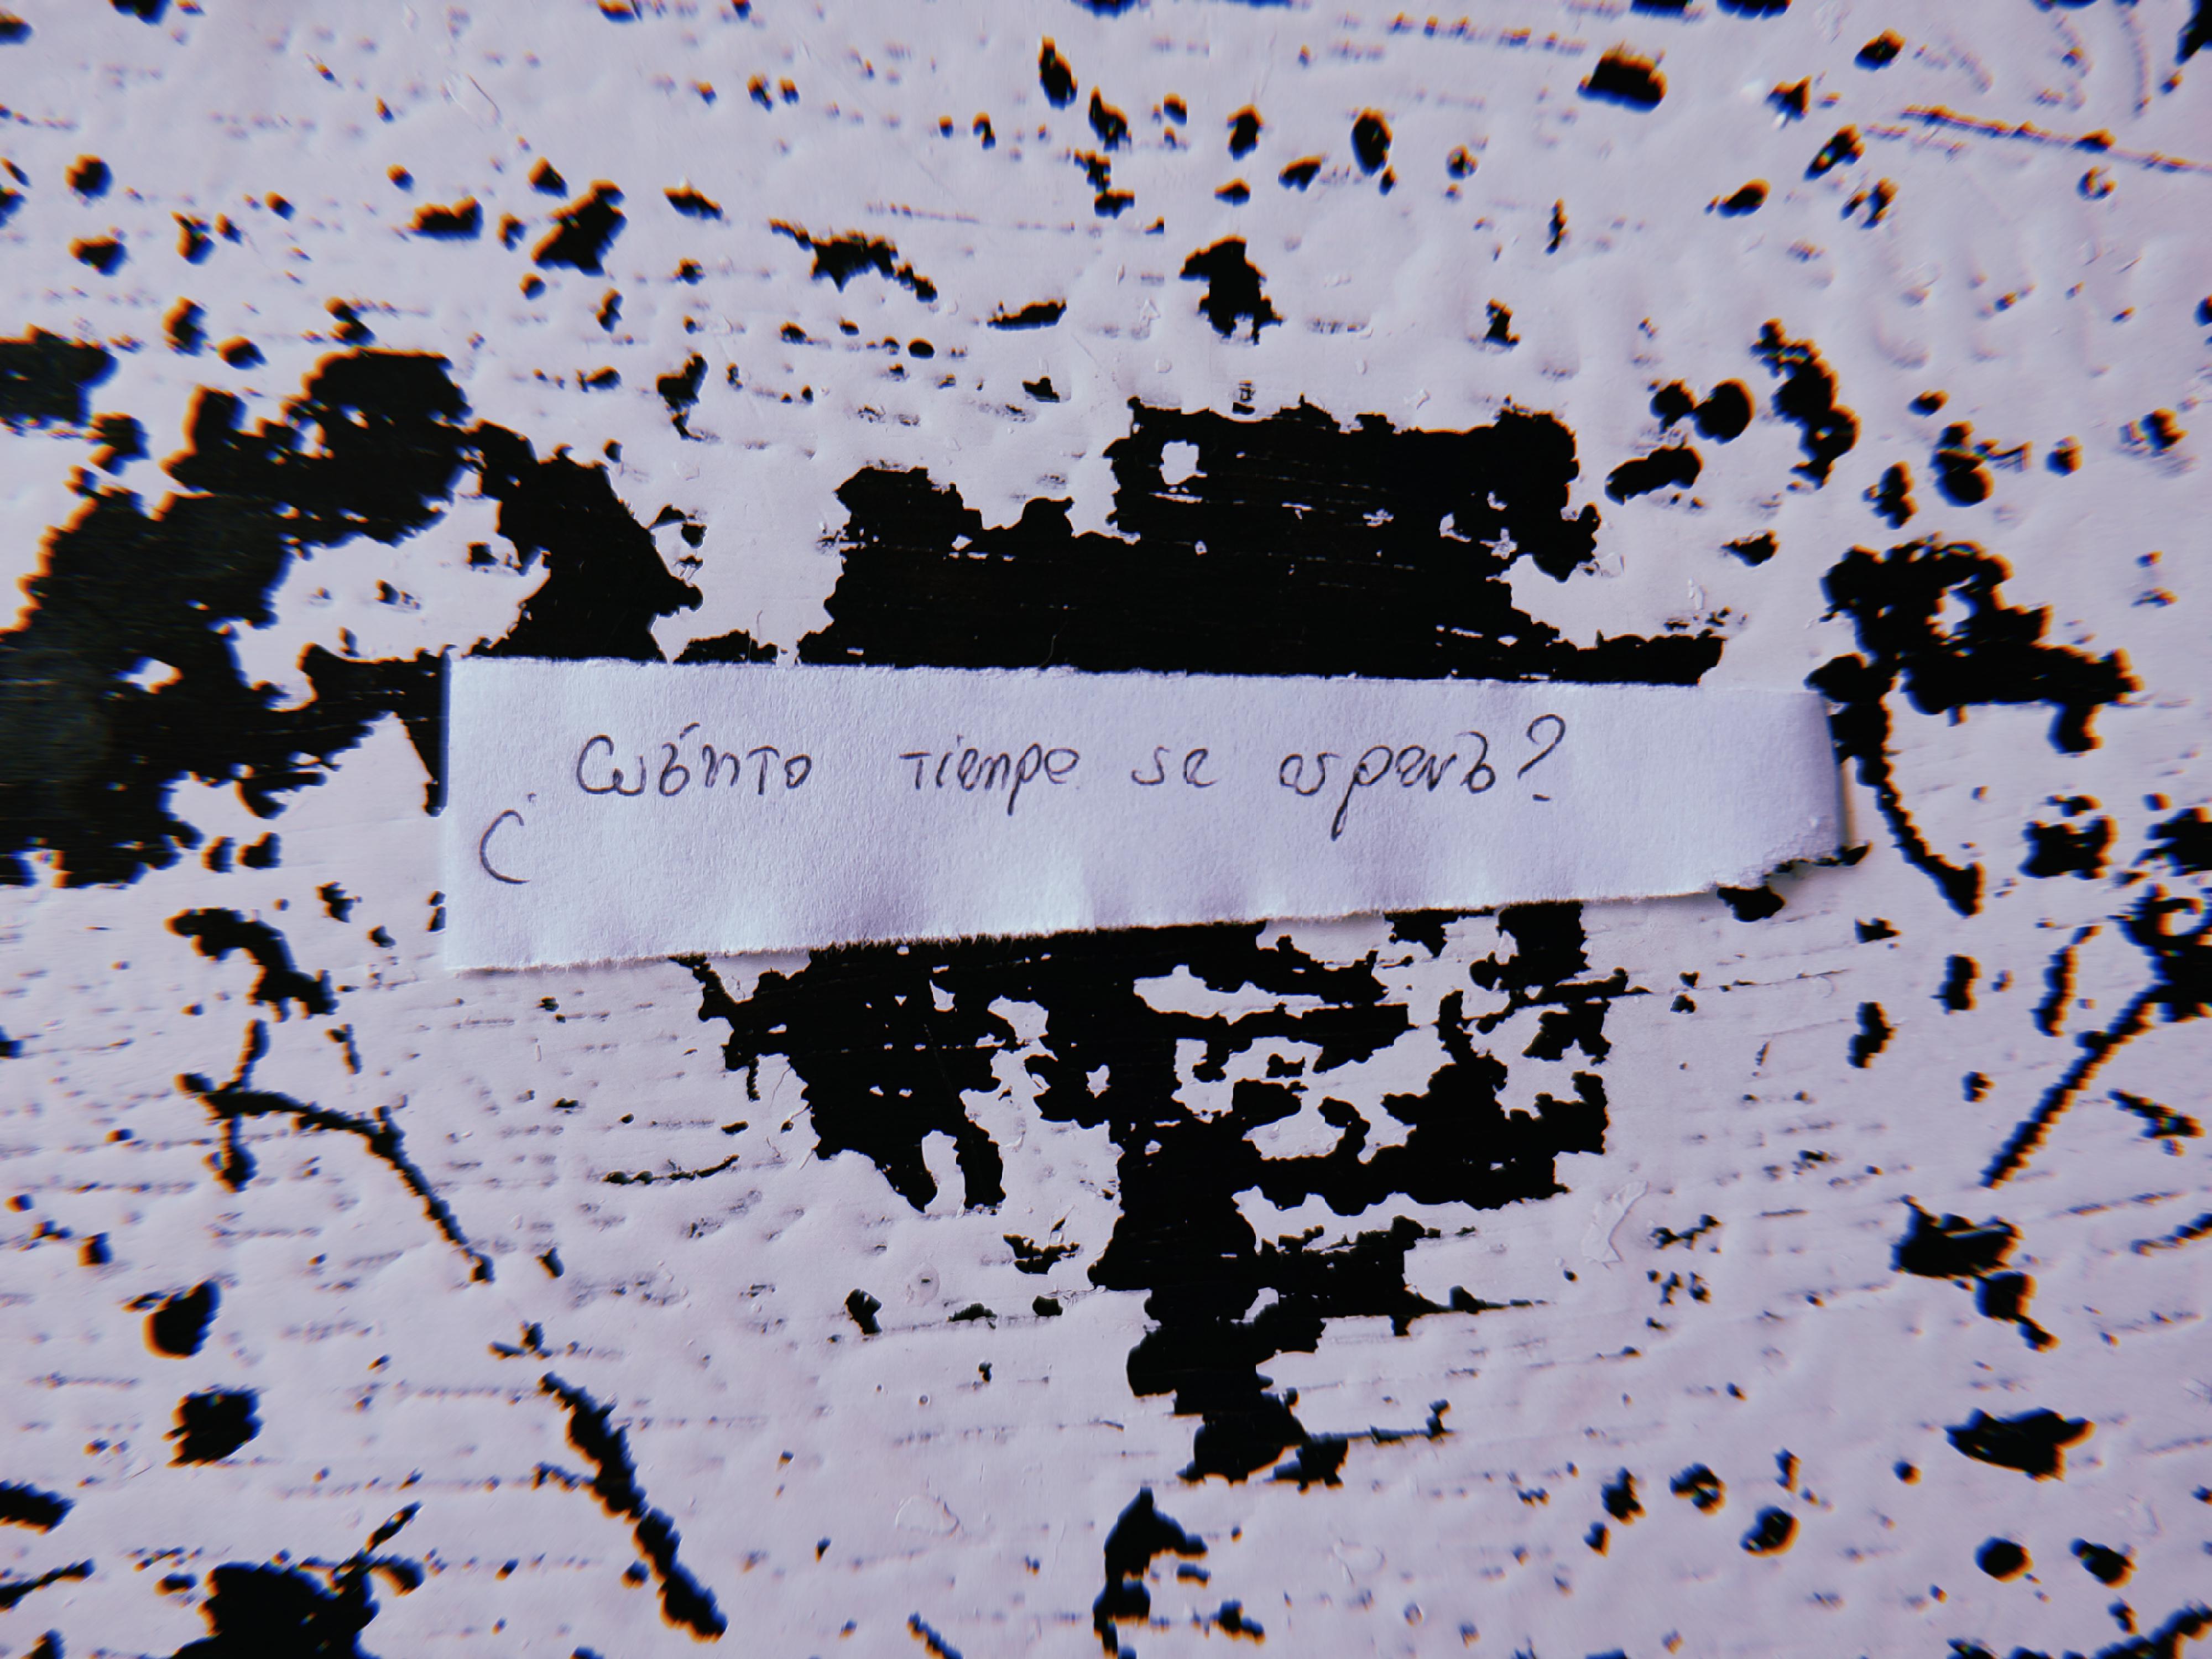 ¿Cuánto tiempo se espera?